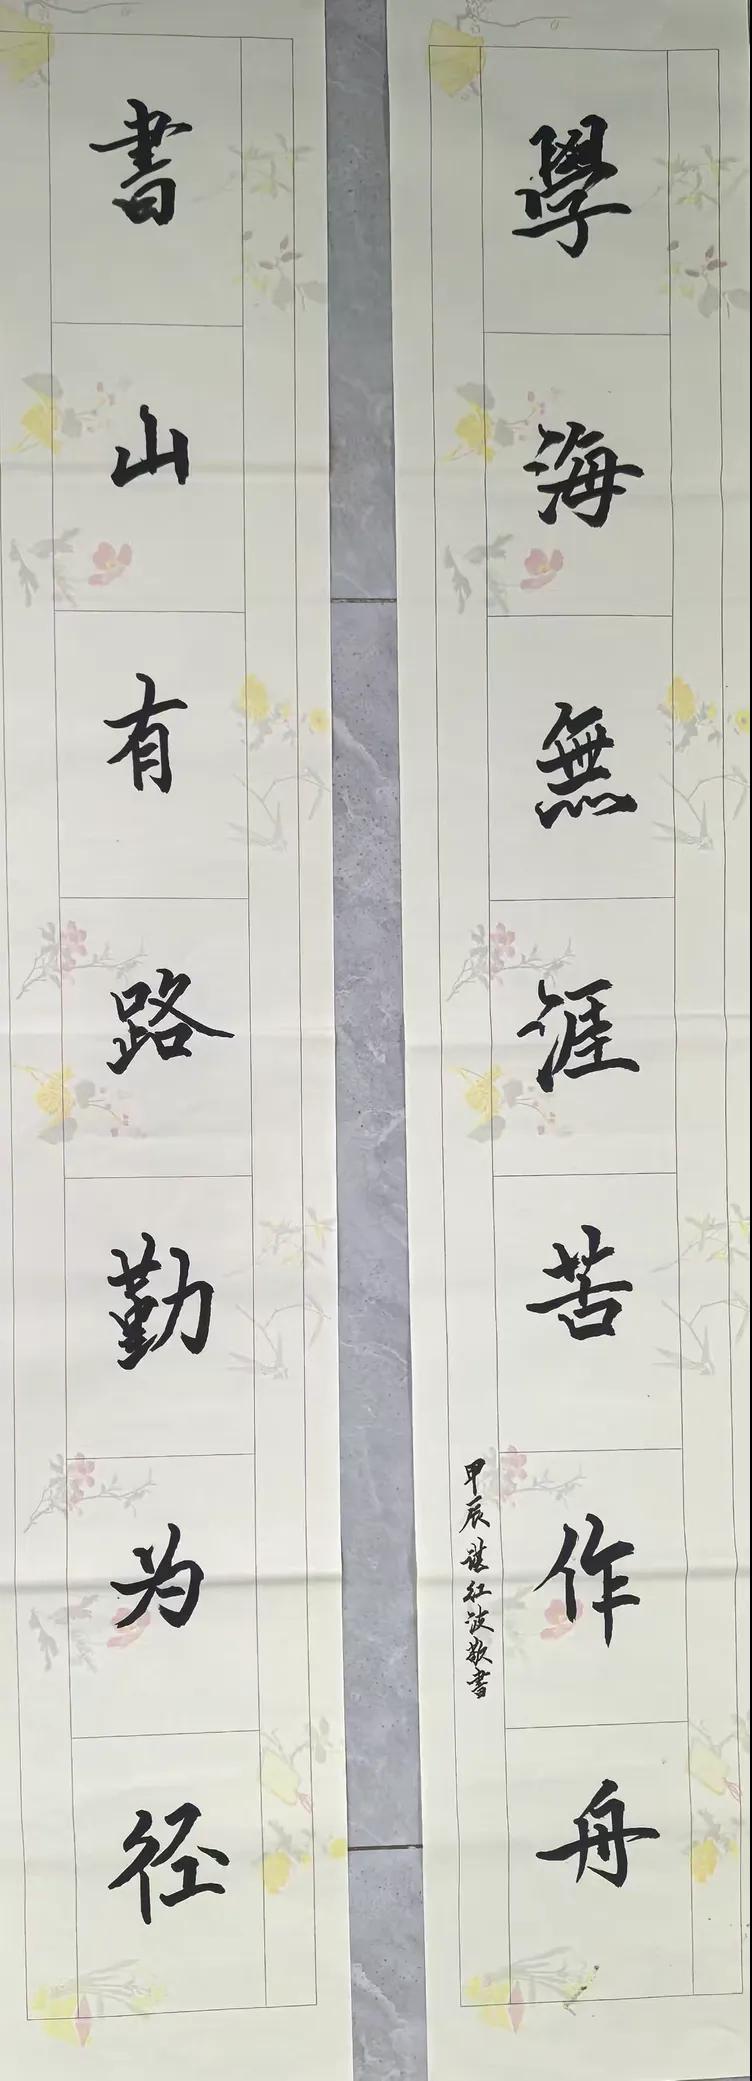 書山有路勤为径
學海無涯苦作舟
甲辰谌红波敬書